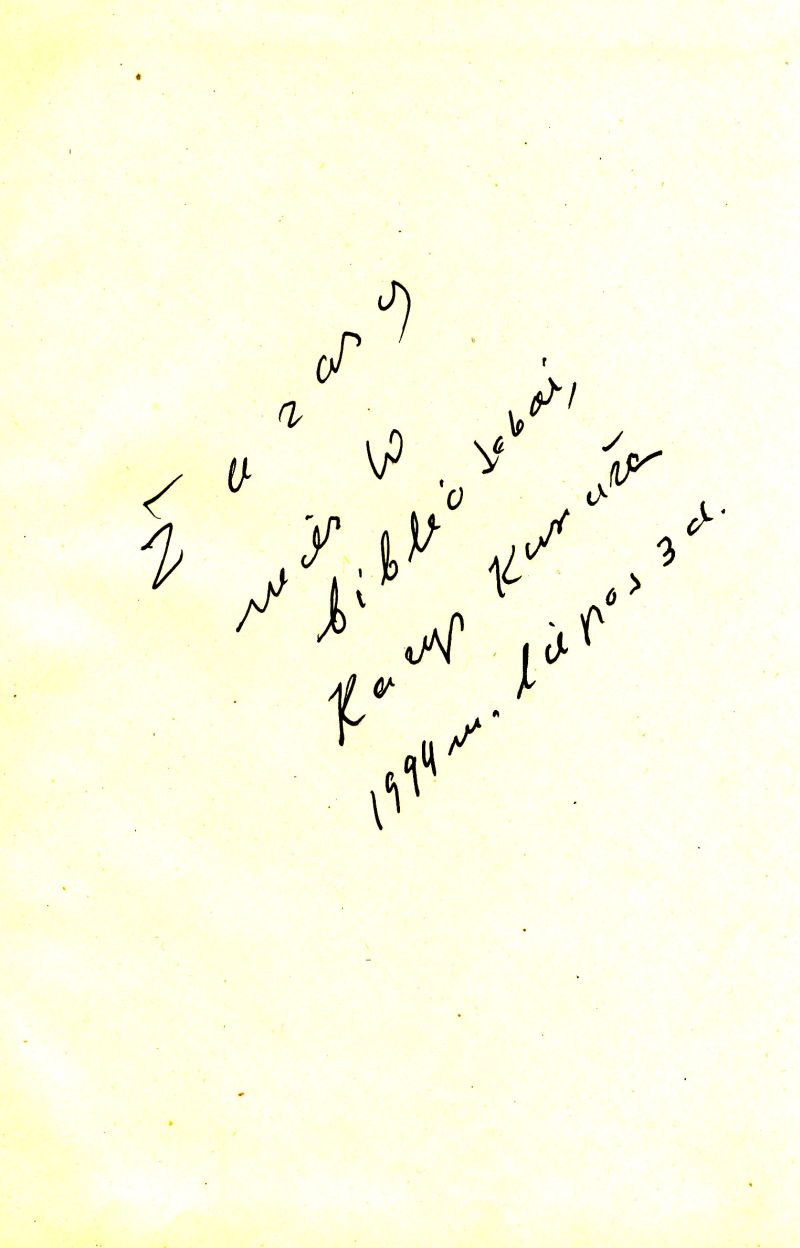 Zarasų
miesto
bibliotekai,
Kazys
1994 m. liepos 3 d.